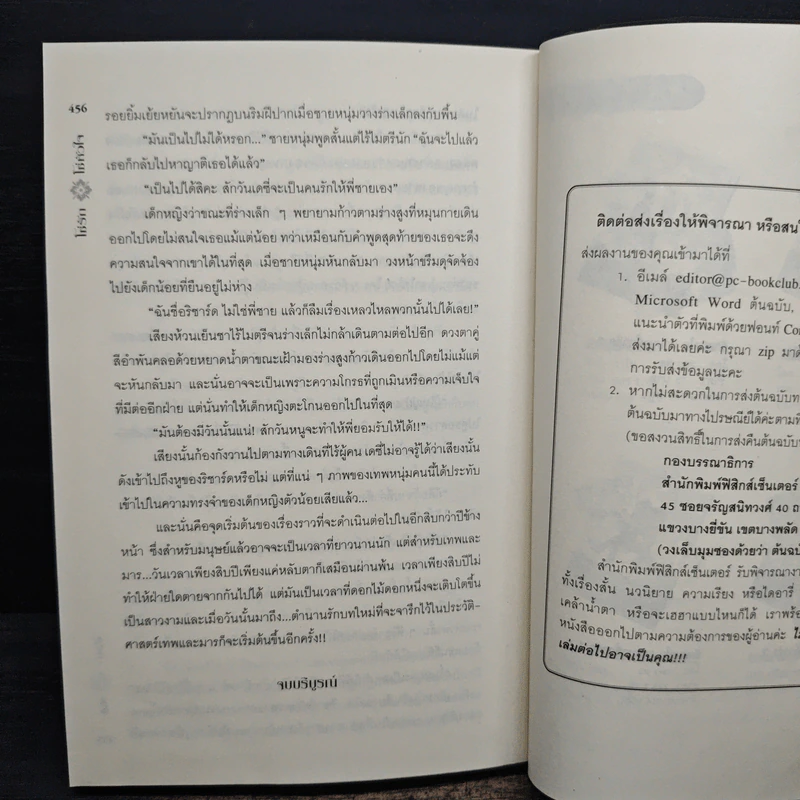 456
ใช่รัก ใช่หัวใจ
รอยยิ้มเย้ยหยันจะปรากฏบนริมฝีปากเมื่อชายหนุ่มวางร่างเล็กลงกับพื้น
“มันเป็นไปไม่ได้หรอก...” ชายหนุ่มพูดสั้นแต่ไร้ไมตรีนัก “ฉันจะไปแล้ว
เธอก็กลับไปหาญาติเธอได้แล้ว”
“เป็นไปได้สิคะ สักวันเดซี่จะเป็นคนรักให้พี่ชายเอง”
เด็กหญิงว่าขณะที่ร่างเล็ก ๆ พยายามก้าวตามร่างสูงที่หมุนกายเดิน
ออกไปโดยไม่สนใจเธอแม้แต่น้อย ทว่าเหมือนกับคำพูดสุดท้ายของเธอจะดึง
ความสนใจจากเขาได้ในที่สุด เมื่อชายหนุ่มหันกลับมา วงหน้าขรึมดุจัดจ้อง
ไปยังเด็กน้อยที่ยืนอยู่ไม่ห่าง
“ฉันชื่อริชาร์ด ไม่ใช่พี่ชาย แล้วก็ลืมเรื่องเหลวไหลพวกนั้นไปได้เลย!”
เสียงห้วนเย็นชาไร้ไมตรีจนร่างเล็กไม่กล้าเดินตามต่อไปอีก ดวงตาคู่
สีอำพันคลอด้วยหยาดน้ำตาขณะเฝ้ามองร่างสูงก้าวเดินออกไปโดยไม่แม้แต่
จะหันกลับมา และนั่นอาจจะเป็นเพราะความโกรธที่ถูกเมินหรือความเจ็บใจ
ที่มีต่ออีกฝ่าย แต่นั่นทำให้เด็กหญิงตะโกนออกไปในที่สุด
“มันต้องมีวันนั้นแน่! สักวันหนูจะทำให้พี่ยอมรับให้ได้!!”
เสียงนั้นก้องกังวานไปตามทางเดินที่ไร้ผู้คน เดซี่ไม่อาจรู้ได้ว่าเสียงนั้น
ดังเข้าไปถึงหูของริชาร์ดหรือไม่ แต่ที่แน่ ๆ ภาพของเทพหนุ่มคนนี้ได้ประทับ
เข้าไปในความทรงจำของเด็กหญิงตัวน้อยเสียแล้ว...
และนั่นคือจุดเริ่มต้นของเรื่องราวที่จะดำเนินต่อไปในอีกสิบกว่าปีข้าง
หน้า ซึ่งสำหรับมนุษย์แล้วอาจจะเป็นเวลาที่ยาวนานนัก แต่สำหรับเทพและ
มาร...วันเวลาเพียงสิบปีเพียงแค่หลับตาก็เสมือนผ่านพ้น เวลาเพียงสิบปีไม่
ทำให้ฝ่ายใดตายจากกันไปได้ แต่มันเป็นเวลาที่ดอกไม้ดอกหนึ่งจะเติบโตขึ้น
เป็นสาวงามและเมื่อวันนั้นมาถึง...ตำนานรักบทใหม่ที่จะจารึกไว้ในประวัติ-
ศาสตร์เทพและมารก็จะเริ่มต้นขึ้นอีกครั้ง!!
จบบริบูรณ์
ติดต่อส่งเรื่องให้พิจารณา หรือสนใ
ส่งผลงานของคุณเข้ามาได้ที่
1. อีเมล์ editor@pc-bookclub.
Microsoft Word ต้นฉบับ,
แนะนำตัวที่พิมพ์ด้วยฟอนท์ Cor
ส่งมาได้เลยค่ะ กรุณา zip มาด้
การรับส่งข้อมูลนะคะ
2. หากไม่สะดวกในการส่งต้นฉบับท
ต้นฉบับมาทางไปรษณีย์ได้ค่ะตามที่
(ขอสงวนสิทธิ์ในการส่งคืนต้นฉบับท
กองบรรณาธิการ
สำนักพิมพ์ฟิสิกส์เซ็นเตอร์
45 ซอยจรัญสนิทวงศ์ 40 ถ
แขวงบางยี่ขัน เขตบางพลัด
(วงเล็บมุมซองด้วยว่า ต้นฉบั
สำนักพิมพ์ฟิสิกส์เซ็นเตอร์ รับพิจารณางา
ทั้งเรื่องสั้น นวนิยาย ความเรียง หรือไดอารี่
เคล้าน้ำตา หรือจะเฮฮาแบบไหนก็ได้ เราพร้อ
หนังสือออกไปตามความต้องการของผู้อ่านค่ะ ไม
เล่มต่อไปอาจเป็นคุณ!!!